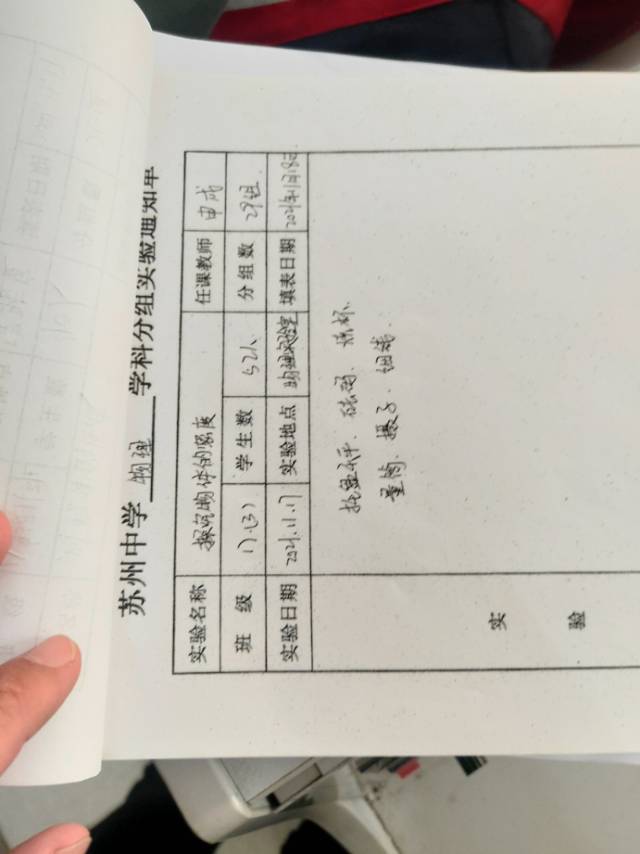 苏州中学 物理 学科分组实验通知单
实验名称 探究物体的密度 任课教师 申成
班 级 17.(3) 学生数 52人 分组数 29组
实验日期 2021.11.17 实验地点 物理实验室 填表日期 2021年11月18日
托盘天平、砝码、烧杯、
量筒、镊子、细线.
实
验